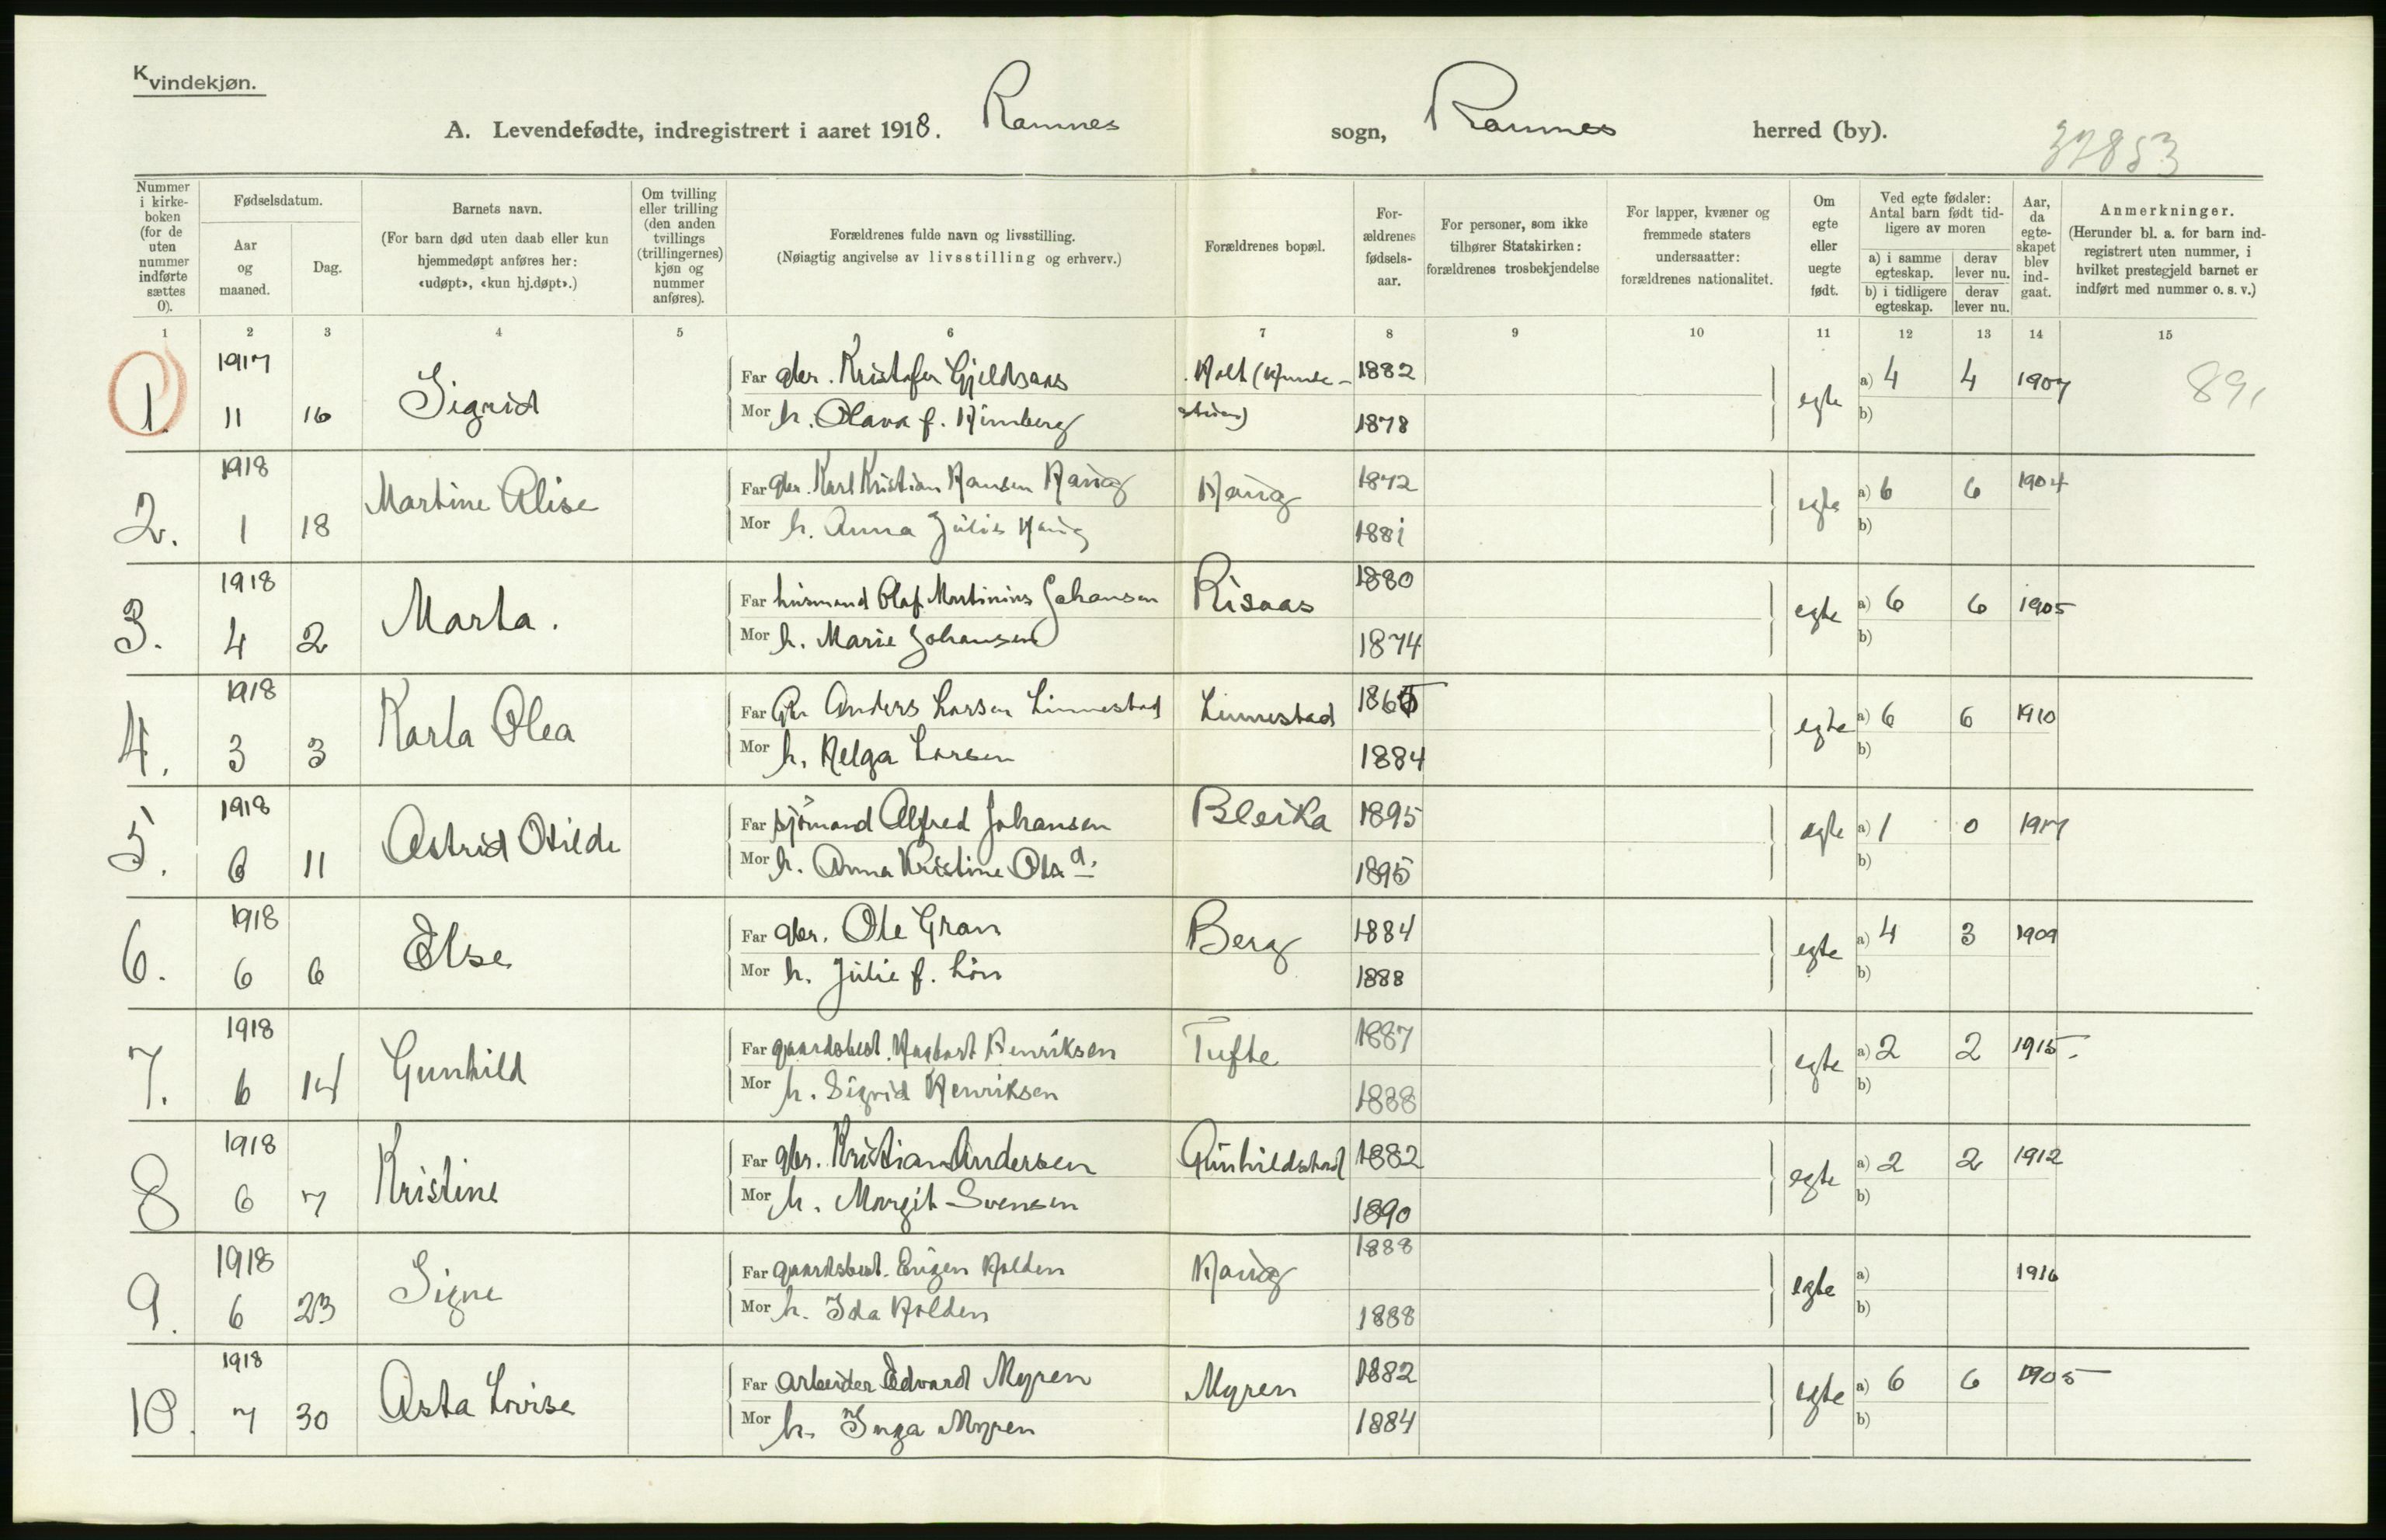 Kvindekjøn.
A. Levendefødte, indregistrert i aaret 1918. Ramnes sogn, Ramnes herred (by).
37853
Nummer i kirke-boken (for de uten nummer indførte sættes 0).
Fødselsdatum.
Aar og maaned.
Dag.
Barnets navn.
(For barn død uten daab eller kun hjemmedøpt anføres her: «udøpt», «kun hj.døpt».)
Om tvilling eller trilling (den anden tvillings (trillingernes) kjøn og nummer anføres).
Forældrenes fulde navn og livsstilling.
(Nøiagtig angivelse av livsstilling og erhverv.)
Forældrenes bopæl.
For-ældrenes fødsels-aar.
For personer, som ikke tilhører Statskirken: forældrenes trosbekjendelse
For lapper, kvæner og fremmede staters undersaatter: forældrenes nationalitet.
Om egte eller uegte født.
Ved egte fødsler: Antal barn født tid-ligere av moren
a) i samme egteskap.
derav lever nu.
b) i tidligere egteskap.
derav lever nu.
Aar, da egte-skapet blev ind-gaat.
Anmerkninger.
(Herunder bl. a. for barn ind-registrert uten nummer, i hvilket prestegjeld barnet er indført med nummer o. s. v.)
1 2 3 4 5 6 7 8 9 10 11 12 13 14 15
1917 Far gbr. Kristofer Gjeldsaas Holt 1882 a) 4 4 1907
1. 11 16 Sigrid Mor h. Olava f. Himberg 1878 egte b) 89,
1918 Far gbr. Karl Kristian Hansen Haug Haug 1872 a) 6 6 1904
2. 1 18 Martine Alise Mor h. Anna Julie Haug 1881 egte b)
1918 Far husmand Olaf Martinius Johansen Risaas 1880 a) 6 6 1905
3. 4 2 Marta. Mor h. Marie Johansen 1874 egte b)
1918 Far Gbr Anders Larsen Linnestad Linnestad a) 6 6 1910
4. 3 3 Karla Olea Mor h. Helga Larsen 1884 egte b)
1918 Far sjömand Alfred Johansen Bleika 1895 a) 1 0 1917
5. 6 11 Astrid Otilde Mor h. Anna Kristine 1895 egte b)
1918 Far gbr. Ole Gran Berg 1884 a) 4 3 1909
6. 6 6 Else Mor h. Julie f. Lön 1888 egte b)
1918 Far gaardsbest. Hagbart Henriksen Tufte 1887 a) 2 2 1915
7. 6 14 Gunhild Mor h. Sigrid Henriksen 1888 egte b)
1918 Far gbr. Kristian Andersen Gunhildstad 1882 a) 2 2 1912
8 6 7 Kristine Mor h. Margit Svensen 1890 egte b)
1918 Far gaardsbest. Eugen Holden Haug 1888 a) 1916
9. 6 23 Signe Mor h. Ida Holden 1888 egte b)
1918 Far arbeider Edvard Myren Myren 1882 a) 6 6 1905
10. 7 30 Asta Lovise Mor h. Inga Myren 1884 egte b)